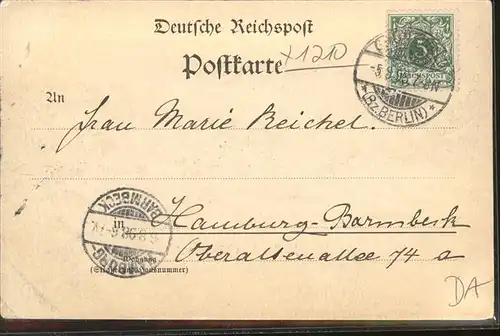 Deutsche Reichspost
Postkarte
x 1210
5
REICHSPOST
(Bz. BERLIN)
An
Frau Marie Reichel.
in Hamburg-Barmbeck
Oberaltenallee 74 a
BARMBECK
Wohnung
DA